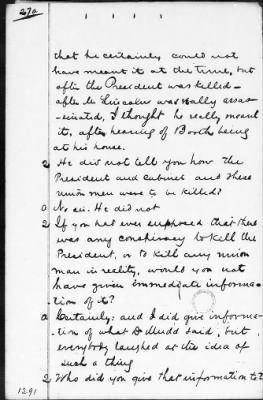 270
that he certainly could not
have meant it at the time, but
after the President was killed—
after Mr Lincoln was really assas-
-sinated, I thought he really meant
it, after hearing of Booth being
at his house.
Q He did not tell you how the
President and Cabinet and these
union men were to be killed?
A No sir. He did not
Q If you had ever supposed that there
was any conspiracy to kill the
President, or to kill any union
man in reality, would you not
have given immediate informa-
tion of it?
A Certainly; and I did give informa-
tion of what Dr Mudd said, but
everybody laughed at the idea of
such a thing
Q Who did you give that information to?
1291